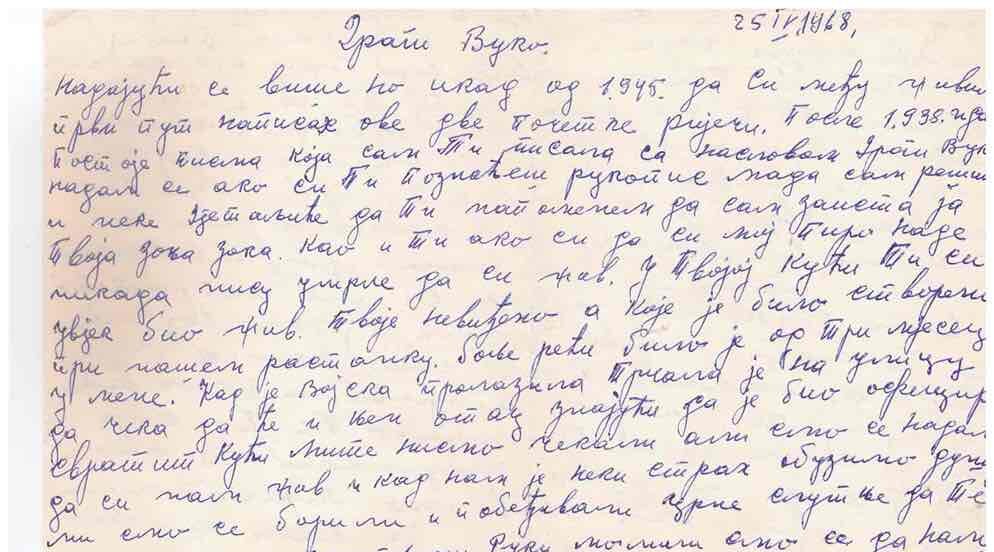 25 IV 1968,
Драги Вуко.
Надајући се више но икад од 1.945. да си међу живи
први пут написах ове две почетне ријечи. После 1.938. нда
постоје писма која сам Ти писала са насловом Драги Вук
надам се ако си Ти познаћеш рукопис мада сам решил
и неке детаљчиће да Ти напоменем да сам заиста ја
твоја зока. Као и ти ако си да си мој Наде
никада нису умрле да си жив. У Твојој кући Ти си
увјек био жив. Твоје невиђено а које је било створено
при нашем растанку. боље рећи било је од три мјесец
у мене. Кад је Војска пролазила трчала је на улицу
да чека да ће и њен отац знајући да је био официр
свратит кући ми те нисмо чекали али смо се надал
да си нам жив и кад нам је неки страх обузимо душу
ми смо се борили и побеђивали црне слутње да Те
руку молили смо се да нам